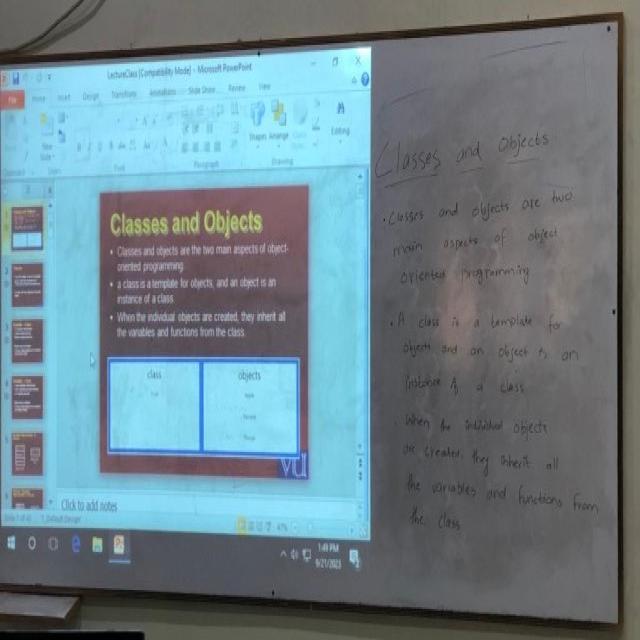 LectureClass [Compatibility Mode] - Microsoft PowerPoint
File Home Insert Design Transitions Animations Slide Show Review View
Shapes Arrange
Editing
Paragraph
Drawing
Classes and Objects
• Classes and objects are the two main aspects of object-
oriented programming.
• a class is a template for objects, and an object is an
instance of a class.
• When the individual objects are created, they inherit all
the variables and functions from the class.
class
objects
Click to add notes
47%
1:49 PM
9/21/2023
Classes and Objects
• Classes and objects are two
main aspects of object
oriented programming
• A class is a template for
objects and an object is an
instance of a class
When the individual objects
are created, they inherit all
the variables and functions from
the class